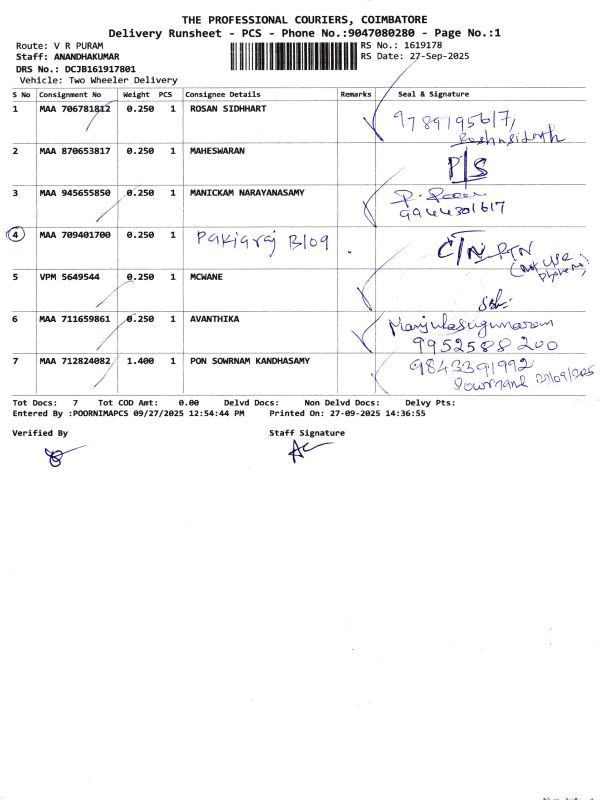 THE PROFESSIONAL COURIERS, COIMBATORE
Delivery Runsheet - PCS - Phone No.:9047080280 - Page No.:1
Route: V R PURAM RS No.: 1619178
Staff: ANANDHAKUMAR RS Date: 27-Sep-2025
DRS No.: DCJB161917801
Vehicle: Two Wheeler Delivery
S No Consignment No Weight PCS Consignee Details Remarks Seal & Signature
1 MAA 706781812 0.250 1 ROSAN SIDHHART 9789195617,
2 MAA 870653817 0.250 1 MAHESWARAN P/S
3 MAA 945655850 0.250 1 MANICKAM NARAYANASAMY
9944301617
4 MAA 709401700 0.250 1 Pakiaraj B109 C/N RTN
5 VPM 5649544 0.250 1 MCWANE
6 MAA 711659861 0.250 1 AVANTHIKA Manjulasugumaran
9952588200
7 MAA 712824082 1.400 1 PON SOWRNAM KANDHASAMY 9843391992
27/09/2025
Tot Docs: 7 Tot COD Amt: 0.00 Delvd Docs: Non Delvd Docs: Delvy Pts:
Entered By :POORNIMAPCS 09/27/2025 12:54:44 PM Printed On: 27-09-2025 14:36:55
Verified By Staff Signature